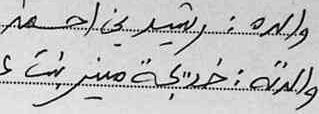 والده : رشيد بن احمد
والدته : خديجة منير بنت